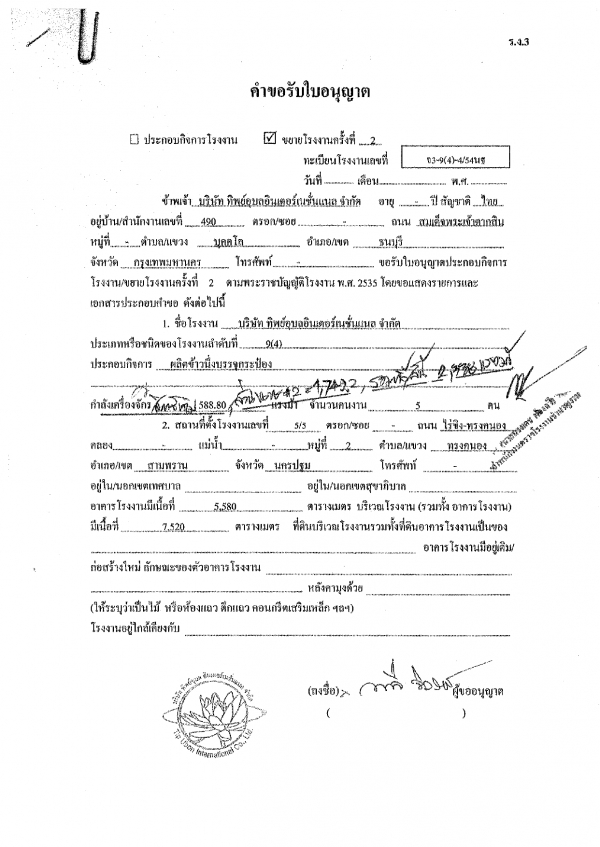 ร.ง.3
คำขอรับใบอนุญาต
☐ ประกอบกิจการโรงงาน ☑ ขยายโรงงานครั้งที่ 2
ทะเบียนโรงงานเลขที่ จ3-9(4)-4/54นฐ
วันที่ เดือน พ.ศ.
ข้าพเจ้า บริษัท ทิพย์อุบลอินเตอร์เนชั่นแนล จำกัด อายุ - ปี สัญชาติ ไทย
อยู่บ้าน/สำนักงานเลขที่ 490 ตรอก/ซอย - ถนน สมเด็จพระเจ้าตากสิน
หมู่ที่ - ตำบล/แขวง บุคคโล อำเภอ/เขต ธนบุรี
จังหวัด กรุงเทพมหานคร โทรศัพท์ - ขอรับใบอนุญาตประกอบกิจการ
โรงงาน/ขยายโรงงานครั้งที่ 2 ตามพระราชบัญญัติโรงงาน พ.ศ. 2535 โดยขอแสดงรายการและ
เอกสารประกอบคำขอ ดังต่อไปนี้
1. ชื่อโรงงาน บริษัท ทิพย์อุบลอินเตอร์เนชั่นแนล จำกัด
ประเภทหรือชนิดของโรงงานลำดับที่ 9(4)
ประกอบกิจการ ผลิตข้าวนึ่งบรรจุกระป๋อง
กำลังเครื่องจักร 588.80 แรงม้า จำนวนคนงาน 5 คน
2. สถานที่ตั้งโรงงานเลขที่ 5/5 ตรอก/ซอย - ถนน ไร่ขิง-ทรงคนอง
คลอง - แม่น้ำ - หมู่ที่ 2 ตำบล/แขวง ทรงคนอง
อำเภอ/เขต สามพราน จังหวัด นครปฐม โทรศัพท์ -
อยู่ใน/นอกเขตเทศบาล อยู่ใน/นอกเขตสุขาภิบาล
อาคารโรงงานมีเนื้อที่ 5,580 ตารางเมตร บริเวณโรงงาน (รวมทั้ง อาคารโรงงาน)
มีเนื้อที่ 7,520 ตารางเมตร ที่ดินบริเวณโรงงานรวมทั้งที่ดินอาคารโรงงานเป็นของ
อาคารโรงงานมีอยู่เดิม/
ก่อสร้างใหม่ ลักษณะของตัวอาคารโรงงาน
หลังคามุงด้วย
(ให้ระบุว่าเป็นไม้ หรือห้องแถว ตึกแถว คอนกรีตเสริมเหล็ก ฯลฯ)
โรงงานอยู่ใกล้เคียงกับ
(ลงชื่อ) ผู้ขออนุญาต
( )
บริษัท ทิพย์อุบล อินเตอร์เนชั่นแนล จำกัด
Tip Ubon International Co., Ltd.